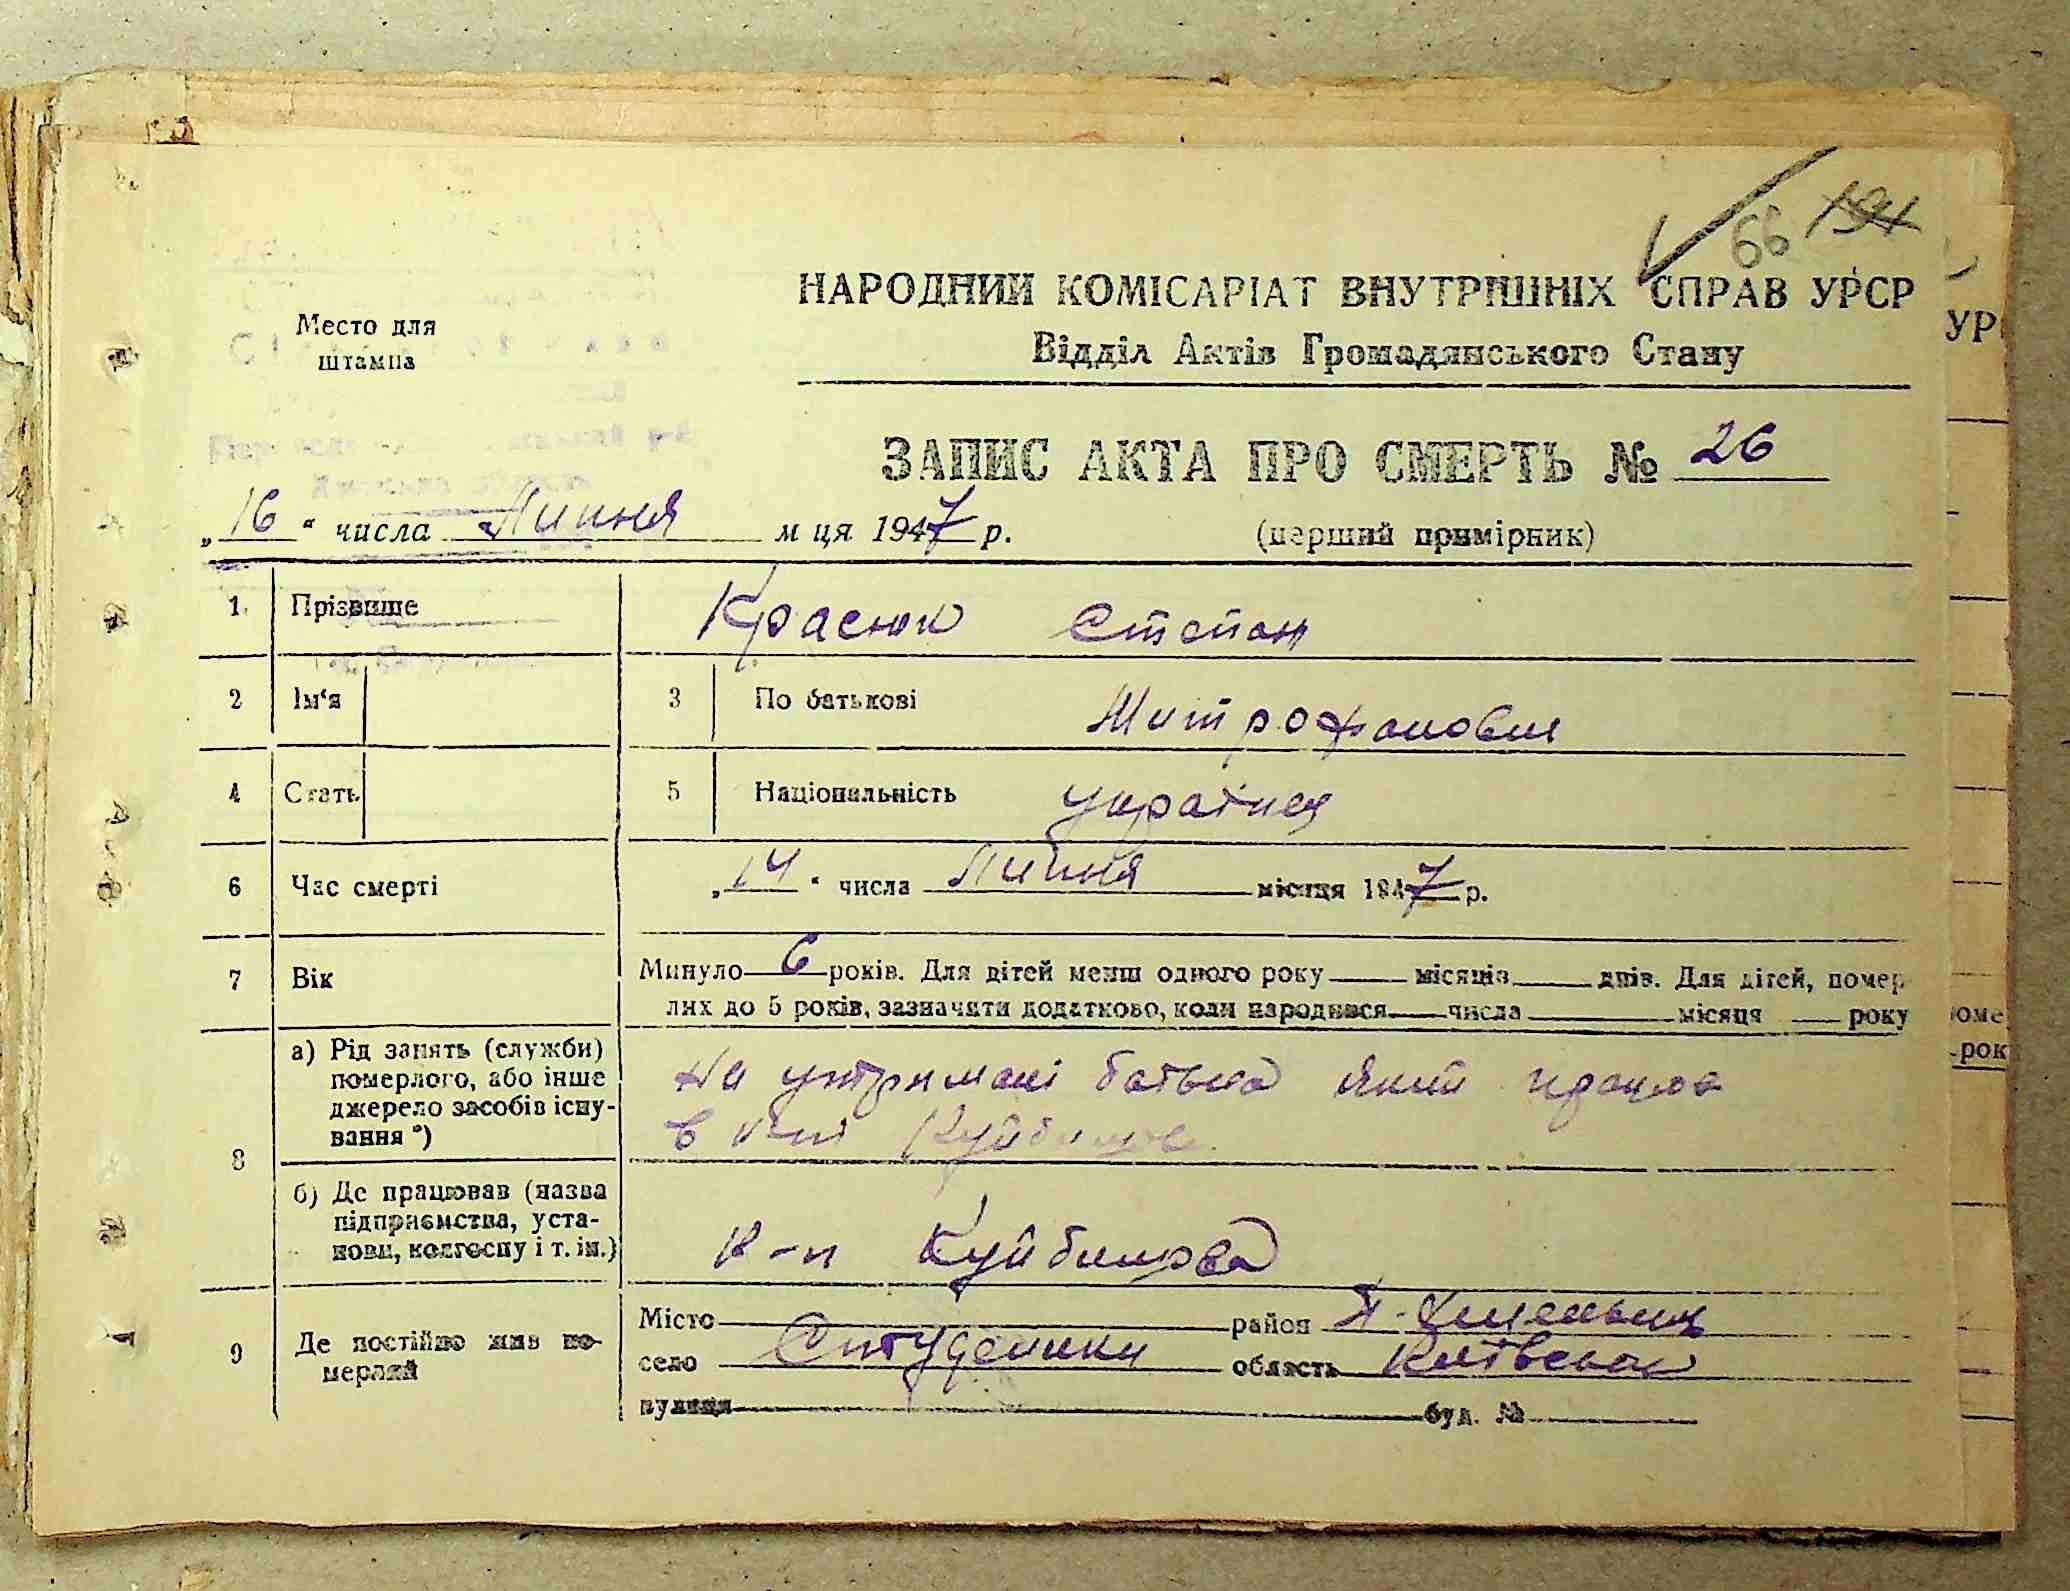 66 191
НАРОДНИЙ КОМІСАРІАТ ВНУТРІШНІХ СПРАВ УРСР
Место для
штампа
Відділ Актів Громадянського Стану
ЗАПИС АКТА ПРО СМЕРТЬ № 26
„16“ числа Липня м ця 1947 р. (перший примірник)
1 Прізвище Красюк Степан
2 Ім'я 3 По батькові Митрофанович
4 Стать 5 Національність українец
6 Час смерті „14“ числа Липня місяця 1947 р.
7 Вік Минуло 6 років. Для дітей менш одного року місяців днів. Для дітей, помер
лих до 5 років, зазначити додатково, коли народився числа місяця року
8 а) Рід занять (служби)
померлого, або інше
джерело засобів існу-
вання *)
На утримані батька який працює
в к-пі Куйбишева
б) Де працював (назва
підприємства, уста-
нови, колгоспу і т. ін.)
к-п Куйбишева
9 Де постійно жив по-
мерлий
Місто район П-Хмельниц
село Студеники область Київская
вулиця буд. №
УР
оме
рок